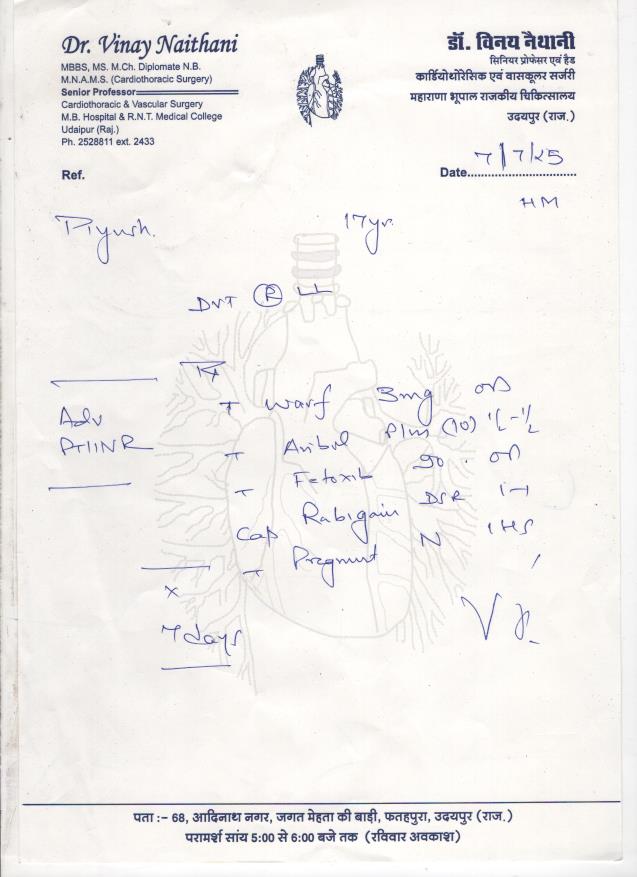 Dr. Vinay Naithani
MBBS, MS. M.Ch. Diplomate N.B.
M.N.A.M.S. (Cardiothoracic Surgery)
Senior Professor
Cardiothoracic & Vascular Surgery
M.B. Hospital & R.N.T. Medical College
Udaipur (Raj.)
Ph. 2528811 ext. 2433
Ref.
डॉ. विनय नैथानी
सिनियर प्रोफेसर एवं हैड
कार्डियोथोरेसिक एवं वासकूलर सर्जरी
महाराणा भूपाल राजकीय चिकित्सालय
उदयपुर (राज.)
Date................................ 7/7/25
HM
Piyush. 17yr.
DVT R LL
T Warf 3mg OD
Adv
PT/INR
T Plus (10) 1/2-1/2
T 90. OD
Cap Rabigain DSR 1-1
T N 1HS
x
7 days
पता :– 68, आदिनाथ नगर, जगत मेहता की बाड़ी, फतहपुरा, उदयपुर (राज.)
परामर्श सांय 5:00 से 6:00 बजे तक (रविवार अवकाश)